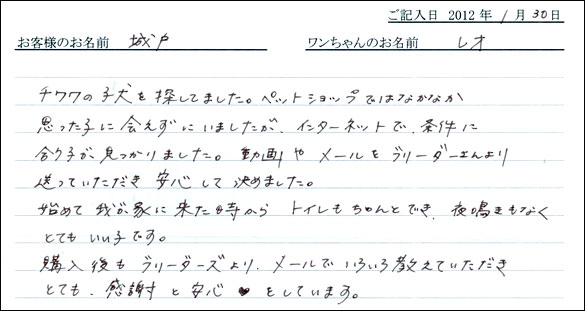 ご記入日 2012年 1月 30日
お客様のお名前 城戸 ワンちゃんのお名前 レオ
チワワの子犬を探してました。ペットショップではなかなか
思った子に会えずにいましたが、インターネットで、条件に
合う子が見つかりました。動画やメールをブリーダーさんより
送っていただき安心して決めました。
始めて我が家に来た時からトイレもちゃんとでき、夜鳴きもなく
とてもいい子です。
購入後もブリーダーズより、メールでいろいろ教えていただき
とても、感謝と安心♥をしています。